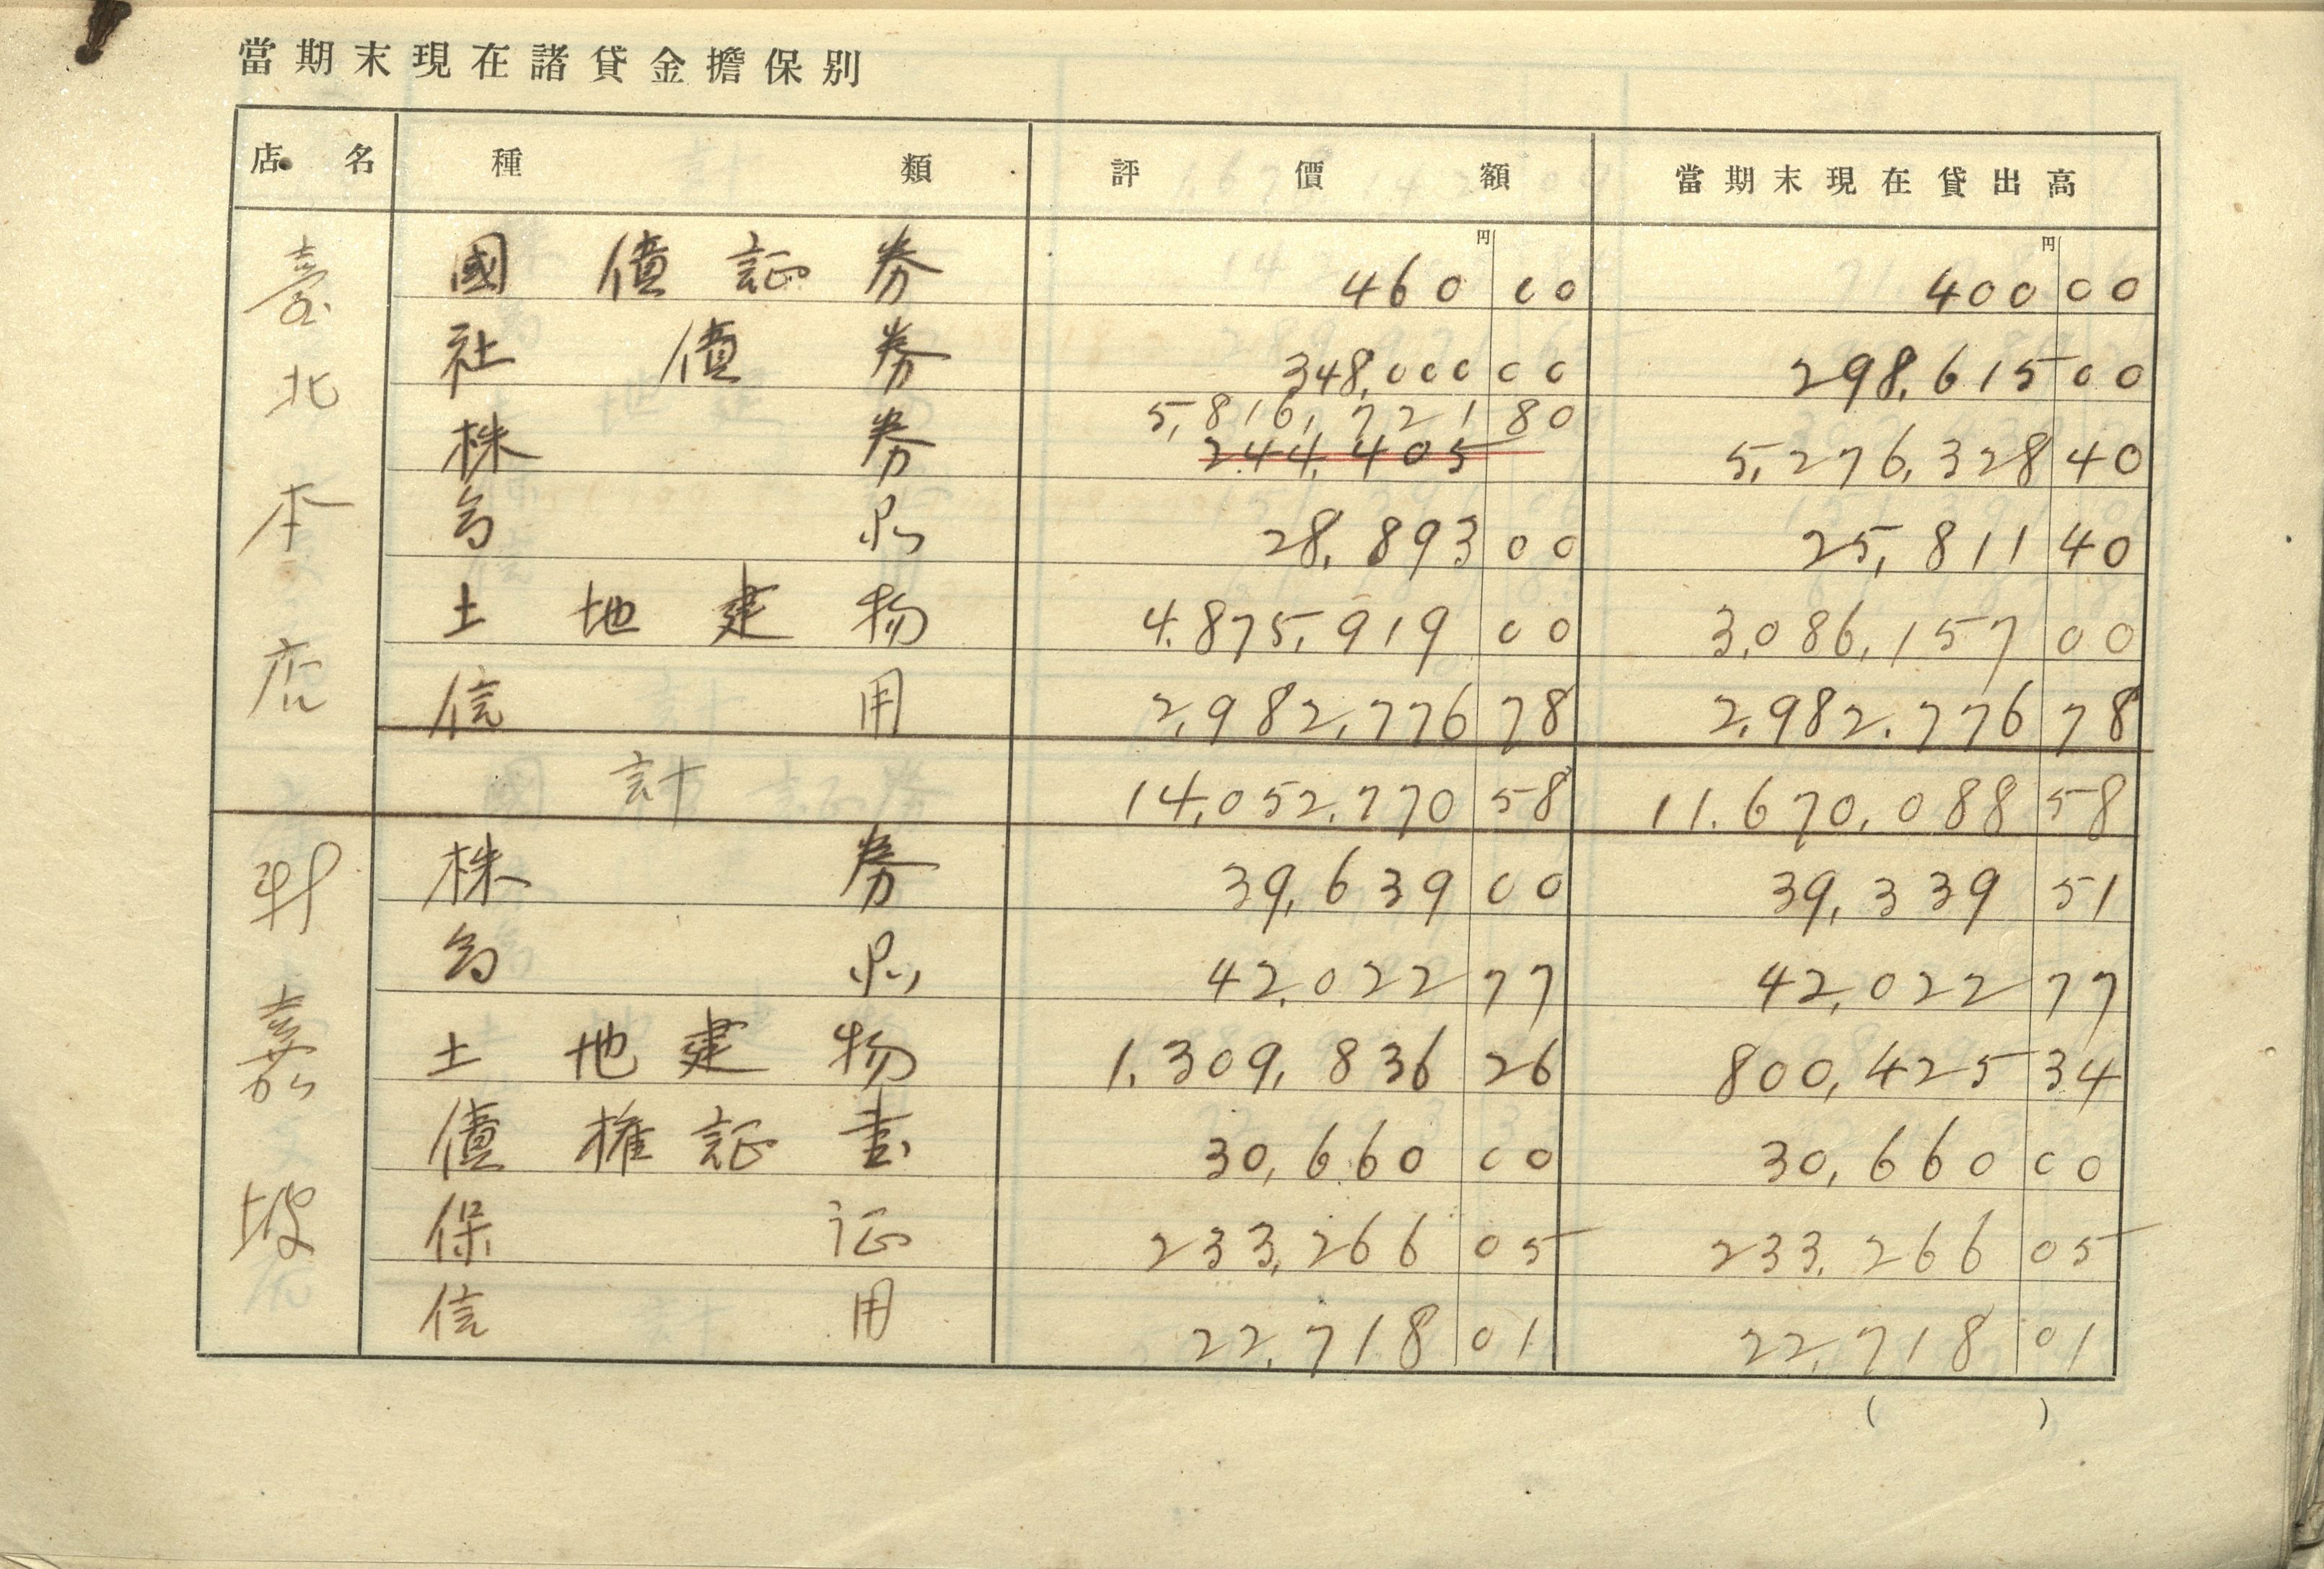 當期末現在諸貸金擔保別
店名 種類 評價額 當期末現在貸出高
臺北本店
円 円
國債証券 460 00 400 00
社債券 348,000 00 298,615 00
5,816,721 80
株券 244,405 5,276,328 40
商品 28,893 00 25,811 40
土地建物 4,875,919 00 3,086,157 00
信用 2,982,776 78 2,982,776 78
計 14,052,770 58 11,670,088 58
新嘉坡
株券 39,639 00 39,339 51
商品 42,022 77 42,022 77
土地建物 1,309,836 26 800,425 34
債権証書 30,660 00 30,660 00
保証 233,266 05 233,266 05
信用 22,718 01 22,718 01
( )